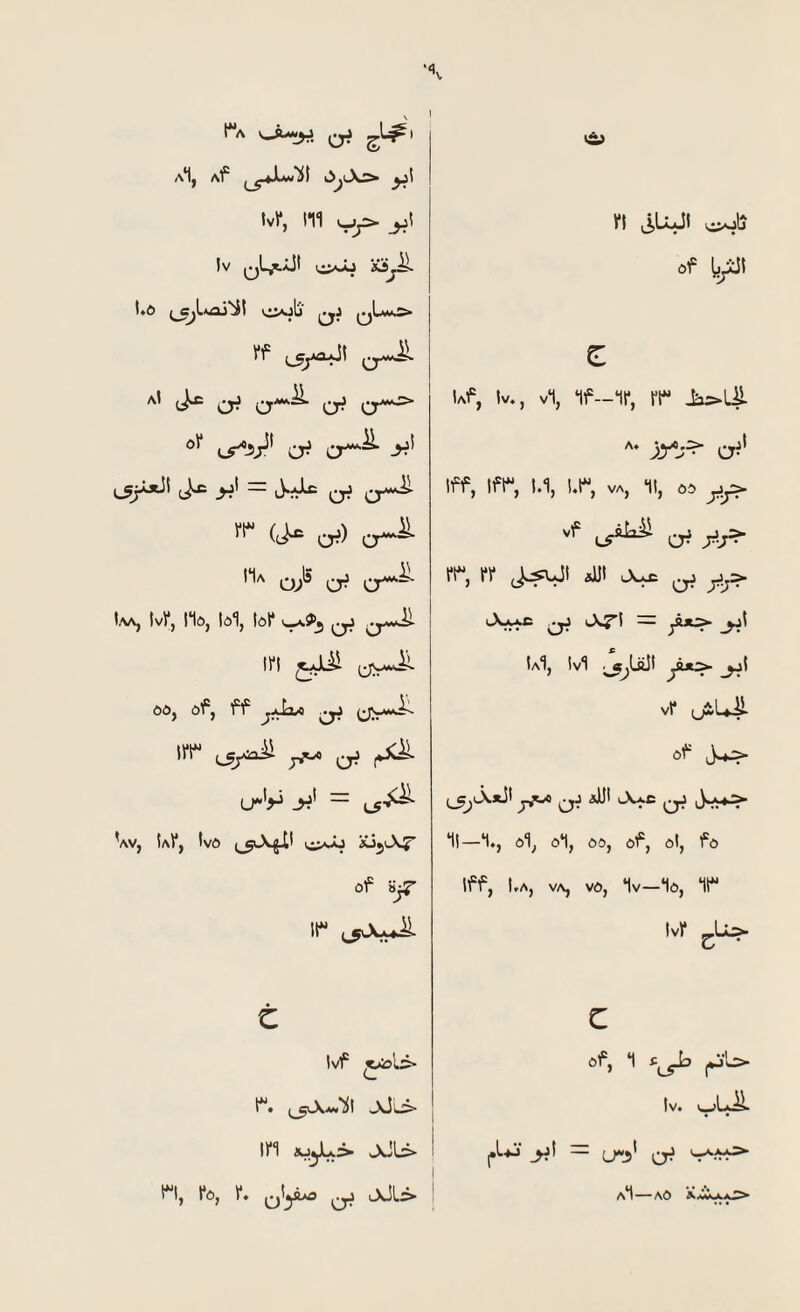 ١٩٧
ث
ثابت البنانى ٢١
الثريا ٥٤
ج
جاحظ ٣٣, ٦٢—٦٤, ٧٦, ١٧٠, ١٨٤
ابن جرموز ٨٠
جرير ٥٥, ٦١, ٧٨, ١٠٣, ١٠٦, ١٤٣, ١٤٤
جرير بن الخطفى ٧٤
جرير بن عبد الله البجلى ٢٢, ٢٣
ابو جعفر = احمد بن عبيد
ابو جعفر القارئ ١٧٦, ١٨٦
٧٢
جمل ٥٤
جميل بن عبد الله بن معمر العذرى
٤٥, ٥١, ٥٤, ٥٥, ٥٦, ٥٩, ٦٠—٦١
٦٣, ٦٥—٦٧, ٧٥, ٧٨, ١٠٨, ١٤٤
جناح ١٧٢
ح
حاتم طىء ٦, ٥٤
حباب ١٧٠
حبيب بن اوس = ابو تمام
حبيشة ٨٥—٨٦
حجاج بن يوسف ٣٨
ابو حدرد الاسلمى ٨٤, ٨٦
ابو حرب ١٦٦, ١٧٢
حرقة بنت النعمان ١٧
حسان بن ثابت الانصارى ١٠٥
حسن البصرى ٢٤
حسن بن حسن بن على ٨١
ابو الحسن بن الرومى ٥٢
الحسن بن عليل = ابو على العنزى
الحسن (بن على) ٢٣
الحسن بن قارن ١٦٨
الحسن بن وهب ١٥٢, ١٥٦, ١٦٥, ١٧٢, ١٨٨
الحسين الخليع ١٢١
الحسين بن مطير ٤٤, ٥٤, ٥٥
الحكم بن معمر الخضرى ١٢٣
الحكمى = ابو نواس
حمدونة بنت المهدى ١٧٥, ١٨٢, ١٨٧
حمزة ٥٤
الحميدى ١٢
خ
خاضع ١٧٤
خالد الاسدى ٣٠
خالد خيلويه ١٢٦
خالد بن صفوان ٢٠, ٢٥, ٣١